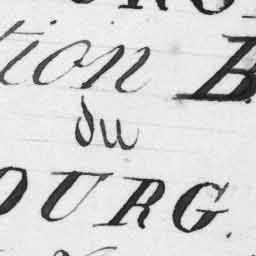 tion B
du
OURG.